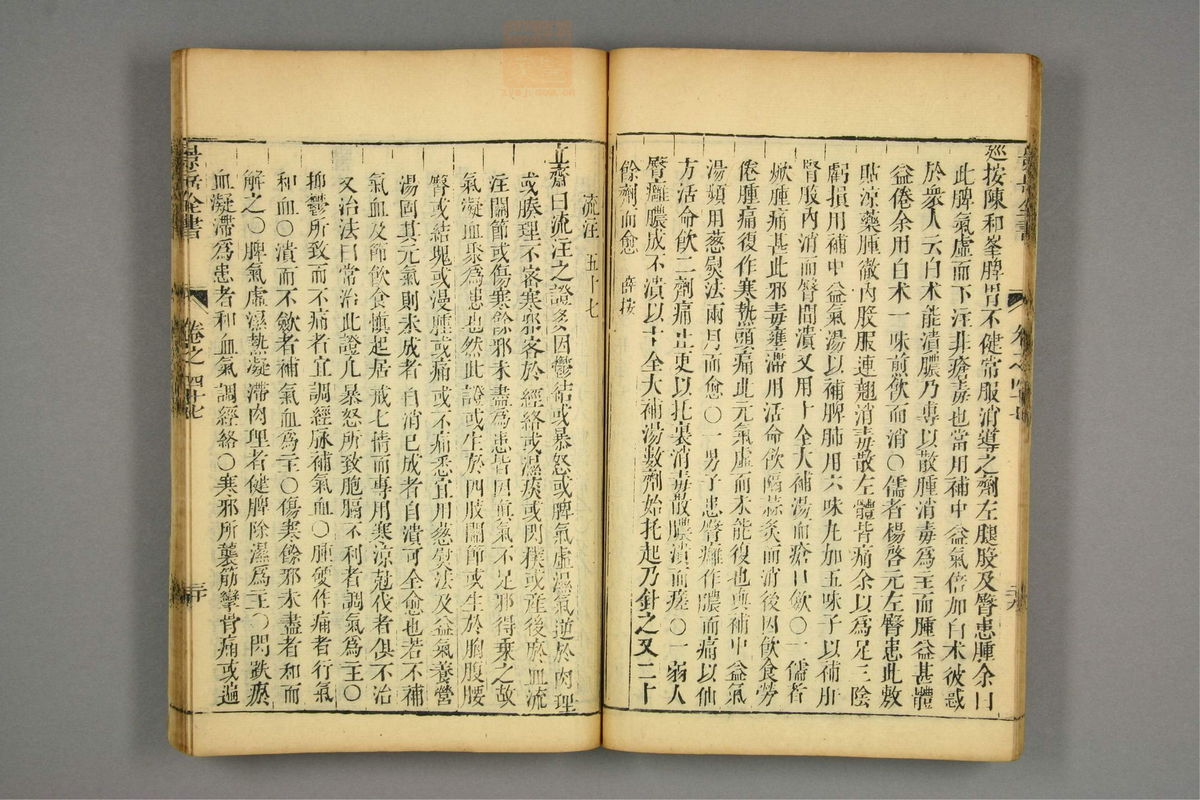 巡按陳和峯脾胃不健常服消導之劑左腿股及臀患腫余曰
此脾氣虛而下注非瘡毒也當用補中益氣倍加白术彼惑
於衆人云白术能潰膿乃專以散腫消毒爲主而腫益甚體
益倦余用白术一味前飲而消○儒者楊啓元左臀患此敷
貼涼藥腫徹內股服連翹消毒散左體皆痛余以爲足三陰
虧損用補中益氣湯以補脾肺用六味丸加五味子以補肝
腎股內消而臀間潰又用十全大補湯血瘡口斂○一儒者
焮腫痛甚此邪毒壅滯用活命飲隔蒜灸而消後因飲食勞
倦腫痛復作寒熱頭痛此元氣虛而未能復也與補中益氣
湯頻用葱熨法兩月而愈○一男子患臀癰作膿而痛以仙
方活命飲二劑痛止更以托裏消毒散膿潰而瘥○一弱人
臀癰膿成不潰以十全大補湯數劑始托起乃針之又二十
餘劑而愈 薛按
景岳全書
卷之四十七
流注 五十七
立齋曰流注之證多因鬱結或暴怒或脾氣虛濕氣逆於肉理
或腠理不密寒邪客於經絡或濕痰或閃撲或產後瘀血流
注關節或傷寒餘邪未盡爲患皆因眞氣不足邪得乘之故
氣凝血聚爲患也然此證或生於四肢關節或生於胸腹腰
臀或結塊或漫腫或痛或不痛悉宜用葱熨法及益氣養營
湯固其元氣則未成者自消已成者自潰可全愈也若不補
氣血及節飲食慎起居戒七情而專用寒涼尅伐者俱不治
又治法曰常治此證凡暴怒所致胞膈不利者調氣爲主○
抑鬱所致而不痛者宜調經脉補氣血○腫硬作痛者行氣
和血○潰而不斂者補氣血爲主○傷寒餘邪未盡者和而
解之○脾氣虛濕熱凝滯肉理者健脾除濕爲主○閃跌瘀
血凝滯爲患者和血氣調經絡○寒邪所襲筋攣骨痛或遍
景岳全書
卷之四十七
三十